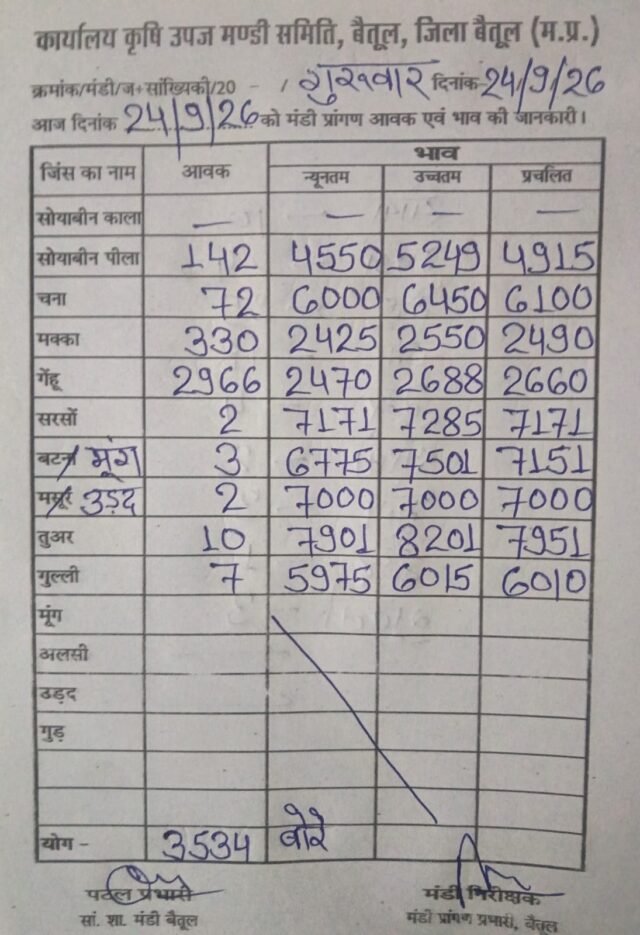 कार्यालय कृषि उपज मण्डी समिति, बैतूल, जिला बैतूल (म.प्र.)
क्रमांक/मंडी/ज+सांख्यिकी/20 - / गुरूवार दिनांक 24/9/26
आज दिनांक 24/9/26 को मंडी प्रांगण आवक एवं भाव की जानकारी।
जिंस का नाम आवक भाव
न्यूनतम उच्चतम प्रचलित
सोयाबीन काला — — — —
सोयाबीन पीला 142 4550 5249 4915
चना 72 6000 6450 6100
मक्का 330 2425 2550 2490
गेंहू 2966 2470 2688 2660
सरसों 2 7171 7285 7171
बटना मूंग 3 6775 7501 7151
मसूर उड़द 2 7000 7000 7000
तुअर 10 7901 8201 7951
गुल्ली 7 5975 6015 6010
मूंग
अलसी
उड़द
गुड़
योग - 3534 बोरे
पटल प्रभारी मंडी निरीक्षक
सां. शा. मंडी बैतूल मंडी प्रांगण प्रभारी, बैतूल